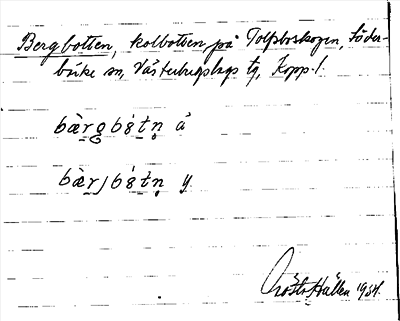 Bergbotten, kolbotten på Tolvsboskogen, Söder-
bärke sn, Västerbergslags tg, Kopp. l.
bæ̀rgbȯtn̥ ä
bæ̀rjbȯtn̥ y
Gösta Hallén 1934.